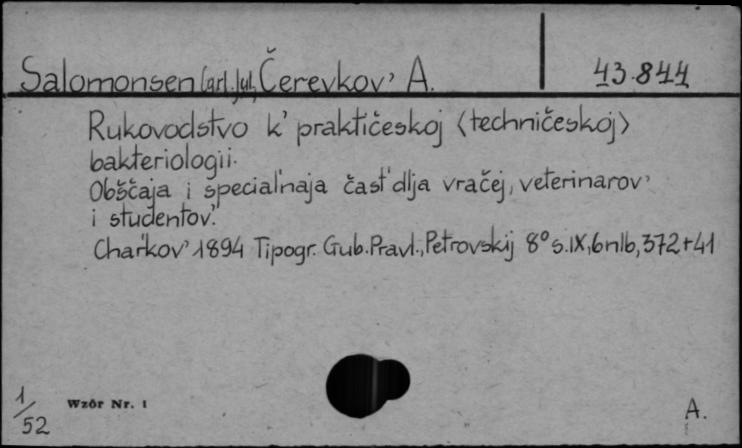 Salomonsen Carl. Jul., Čerevkov' A. 43.844
Rukovodstvo k' praktičeskoj <techničeskoj>
bakteriologii.
Obščaja i special'naja čast' dlja vračej, veterinarov'
i studentov'.
Char'kov' 1894 Tipogr. Gub. Pravl., Petrovskij 8° s. IX, 6nlb, 372+41
1/52 Wzór Nr. 1 A.